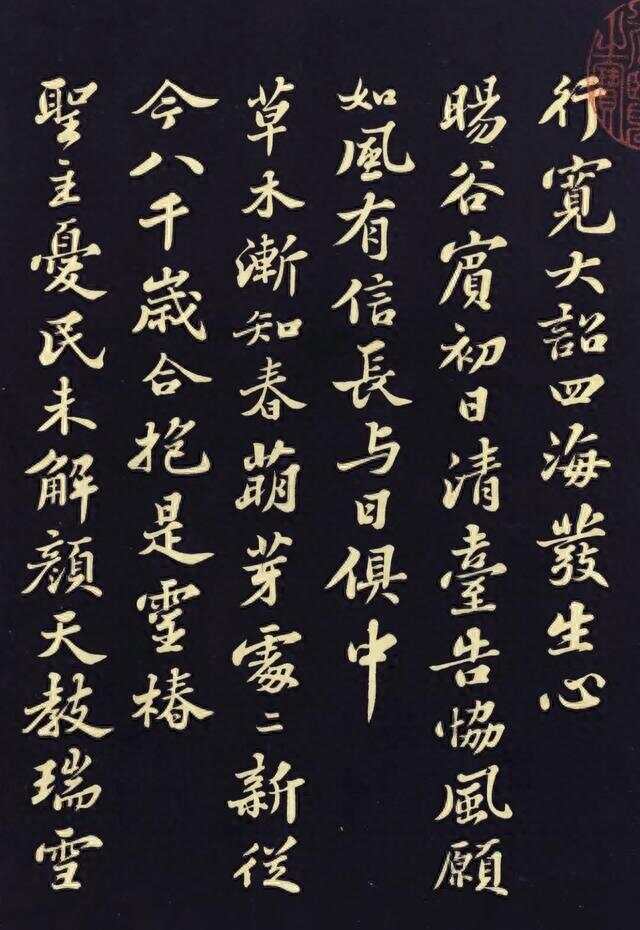 行寬大詔四海發生心
暘谷賓初日清臺告協風願
如風有信長與日俱中
草木漸知春萌芽處二新從
今八千歲合抱是靈椿
聖主憂民未解顏天教瑞雪